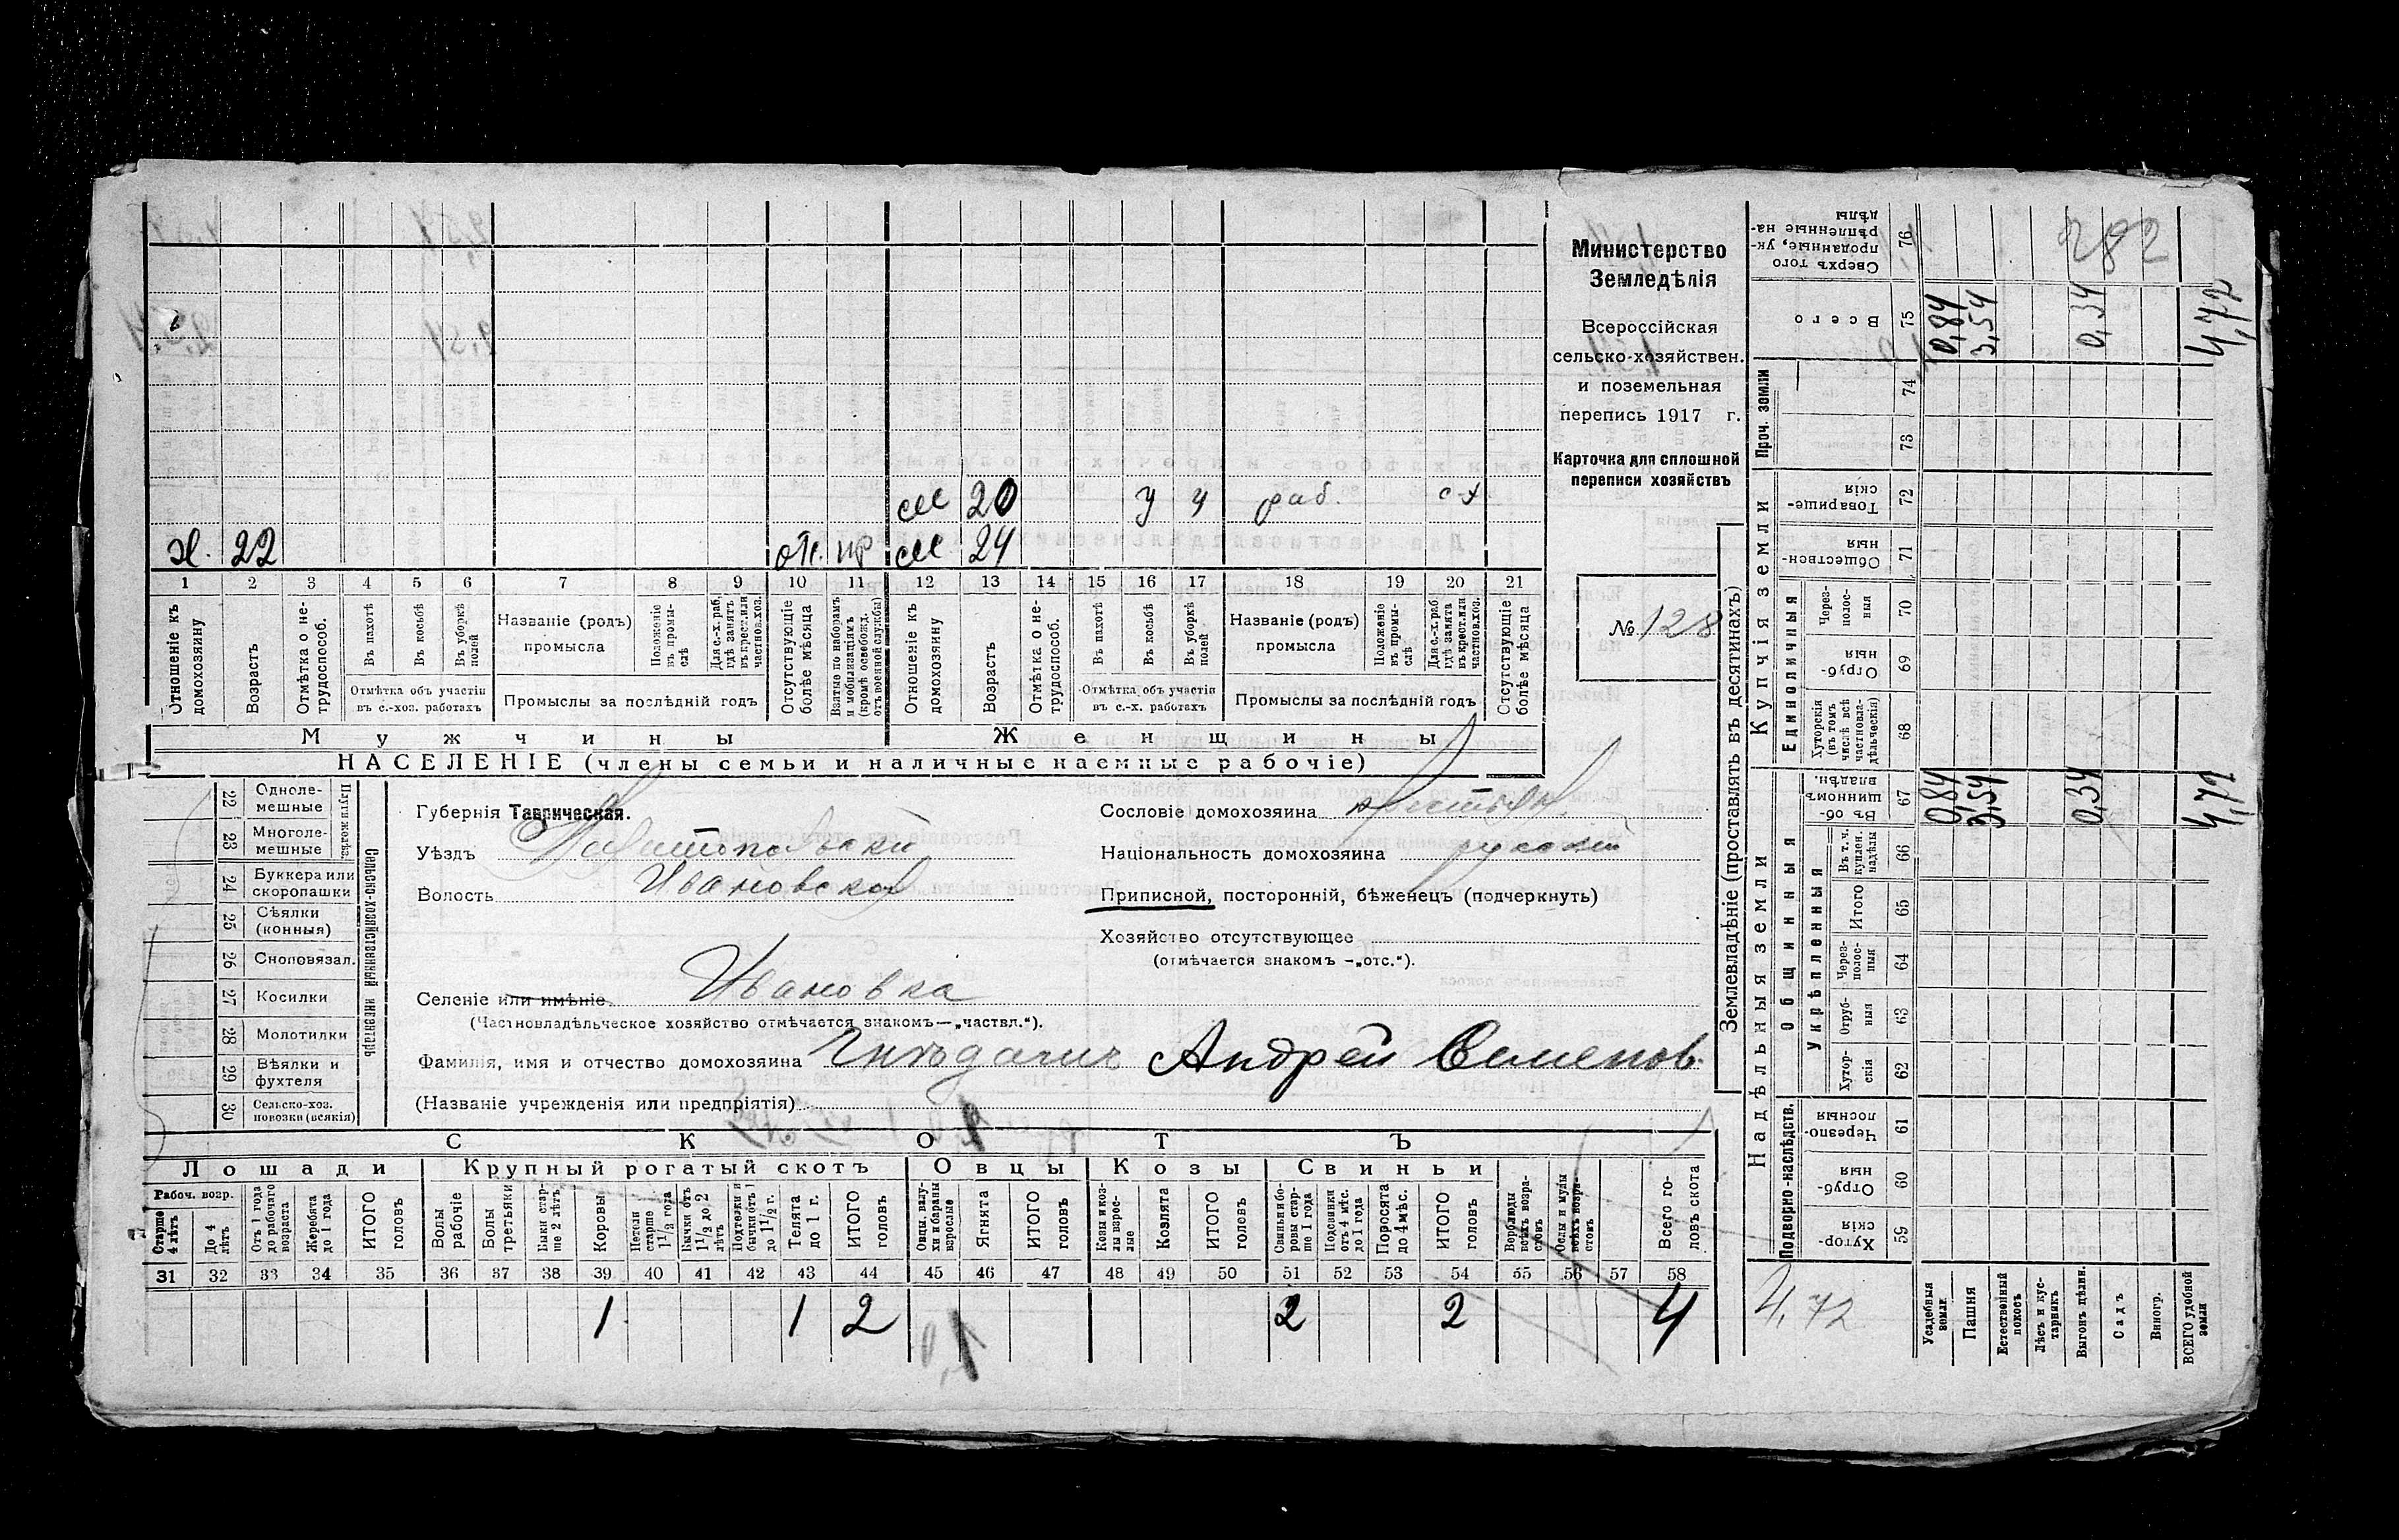 282
Министерство
Земледѣлія
Всероссійская
сельско-хозяйствен.
и поземельная
перепись 1917 г.
Карточка для сплошной
переписи хозяйствъ
№ 128
20 У У раб. с-х
х. 22 отс. 24
1 2 3 4 5 6 7 8 9 10 11 12 13 14 15 16 17 18 19 20 21
Отношеніе къ домохозяину
Возрастъ
Отмѣтка о не-трудоспособ.
Въ пахотѣ
Въ косьбѣ
Въ уборкѣ полей
Отмѣтка объ участіи
въ с.-хоз. работахъ
Названіе (родъ)
промысла
Положеніе въ промы-слѣ
Для с.-х. раб, гдѣ занятъ въ крест. или частновл. хоз.
Промыслы за послѣдній годъ
Отсутствующіе болѣе мѣсяца
Взятые по наборамъ и мобилизаціямъ (кромѣ освобожд. отъ военной службы)
Отношеніе къ домохозяину
Возрастъ
Отмѣтка о не-трудоспособ.
Въ пахотѣ
Въ косьбѣ
Въ уборкѣ полей
Отмѣтка объ участіи
въ с.-х. работахъ
Названіе (родъ)
промысла
Положеніе въ промы-слѣ
Для с.-х. раб гдѣ занята въ крест. или частновл. хоз.
Промыслы за послѣдній годъ
Отсутствующіе болѣе мѣсяца
Мужчины Женщины
НАСЕЛЕНІЕ (члены семьи и наличные наемные рабочіе)
Сельско-хозяйственный инвентарь
Плуги желѣз.
22 Одноле-мешные
23 Многоле-мешные
24 Буккера или скоропашки
25 Сѣялки (конныя)
26 Сноповязал.
27 Косилки
28 Молотилки
29 Вѣялки и фухтеля
30 Сельско-хоз. повозки (всякія)
Губернія Таврическая.
Уѣздъ Мелитопольскій
Волость Ивановская
Селеніе или имѣніе Ивановка
(Частновладѣльческое хозяйство отмѣчается знакомъ—„частвл.“).
Фамилія, имя и отчество домохозяина Андрей Семенов.
(Названіе учрежденія или предпріятія)
Сословіе домохозяина крестьян.
Національность домохозяина русский
Приписной, посторонній, бѣженецъ (подчеркнуть)
Хозяйство отсутствующее
(отмѣчается знакомъ —„отс.“).
СКОТЪ
Лошади Крупный рогатый скотъ Овцы Козы Свиньи
Рабоч. возр.
Старше 4 лѣтъ
До 4 лѣтъ
Отъ 1 года до рабочаго возраста
Жеребята до 1 года
ИТОГО головъ
Волы рабочіе
Волы третьяки
Быки стар-ше 2 лѣтъ
Коровы
Нетели старше 1 1/2 года
Бычки отъ 1 1/2 до 2 лѣтъ
Подтелки и бычки отъ 1 до 1 1/2 г.
Телята до 1 г.
ИТОГО головъ
Овцы, валу-хи и бараны взрослые
Ягнята
ИТОГО головъ
Козы и коз-лы взрос-лые
Козлята
ИТОГО головъ
Свиньи и бо-ровы стар-ше 1 года
Подсвинки отъ 4 мѣс. до 1 года
Поросята до 4 мѣс.
ИТОГО головъ
Верблюды всѣхъ возра-стовъ
Ослы и мулы всѣхъ возра-стовъ
Всего го-ловъ скота
31 32 33 34 35 36 37 38 39 40 41 42 43 44 45 46 47 48 49 50 51 52 53 54 55 56 57 58
1 1 2 2 2 4
Землевладѣніе (проставлять въ десятинахъ)
Надѣльныя земли
Купчія земли
Проч. земли
Подворно-наслѣдств.
Общинныя
Укрѣпленныя
Единоличныя
Сверхъ того проданные, ук-рѣпленные на-дѣлы 76
Всего 75 0,84 3,54 0,34 4,72
74
73
Товарище-скія 72
Обществен-ныя 71
Через-полос-ныя 70
Отруб-ныя 69
Хуторскія (въ томъ числѣ всѣ частновла-дѣльческія) 68
Въ об-щинномъ владѣн. 67 0,84 3,54 0,34 4,72
Въ т. ч. куплен. надѣлы 66
Итого 65
Через-полос-ныя 64
Отруб-ныя 63
Хутор-скія 62
Черезпо-лосныя 61
Отруб-ныя 60
Хутор-скія 59
4,72
Усадебныя земли
Пашня
Естественный покосъ
Лѣсъ и кус-тарникъ
Выгонъ дѣлин.
Садъ
Виногр.
ВСЕГО удобной земли